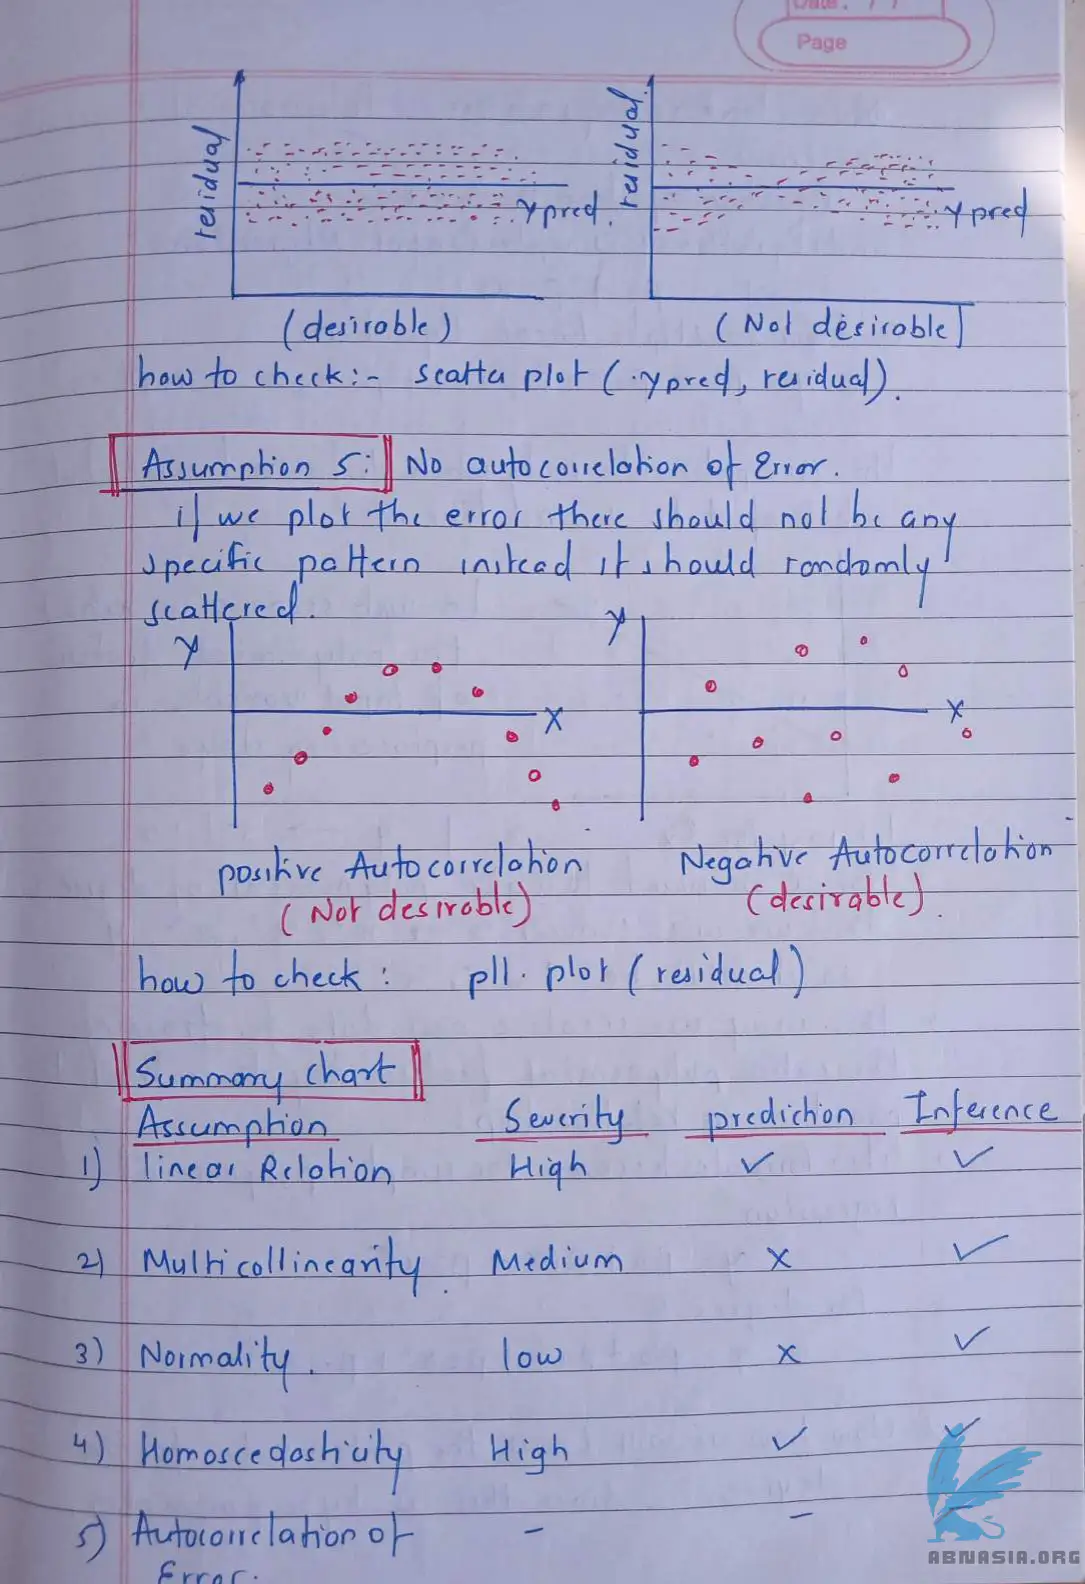 Date. / /
Page
residual
Ypred.
residual
Ypred
(desirable)
(Not desirable)
how to check:- scatter plot (ypred, residual).
Assumption 5: No autocorrelation of Error.
if we plot the error there should not be any
specific pattern instead it should randomly
scattered.
Y
X
Y
X
positive Autocorrelation
(Not desirable)
Negative Autocorrelation
(desirable).
how to check: pll. plot (residual)
Summary chart
Assumption Severity prediction Inference
1) linear Relation High ✓ ✓
2) Multicollinearity. Medium x ✓
3) Normality. low x ✓
4) Homoscedasticity High ✓ ✓
5) Autocorrelation of - -
Error.
ABNASIA.ORG